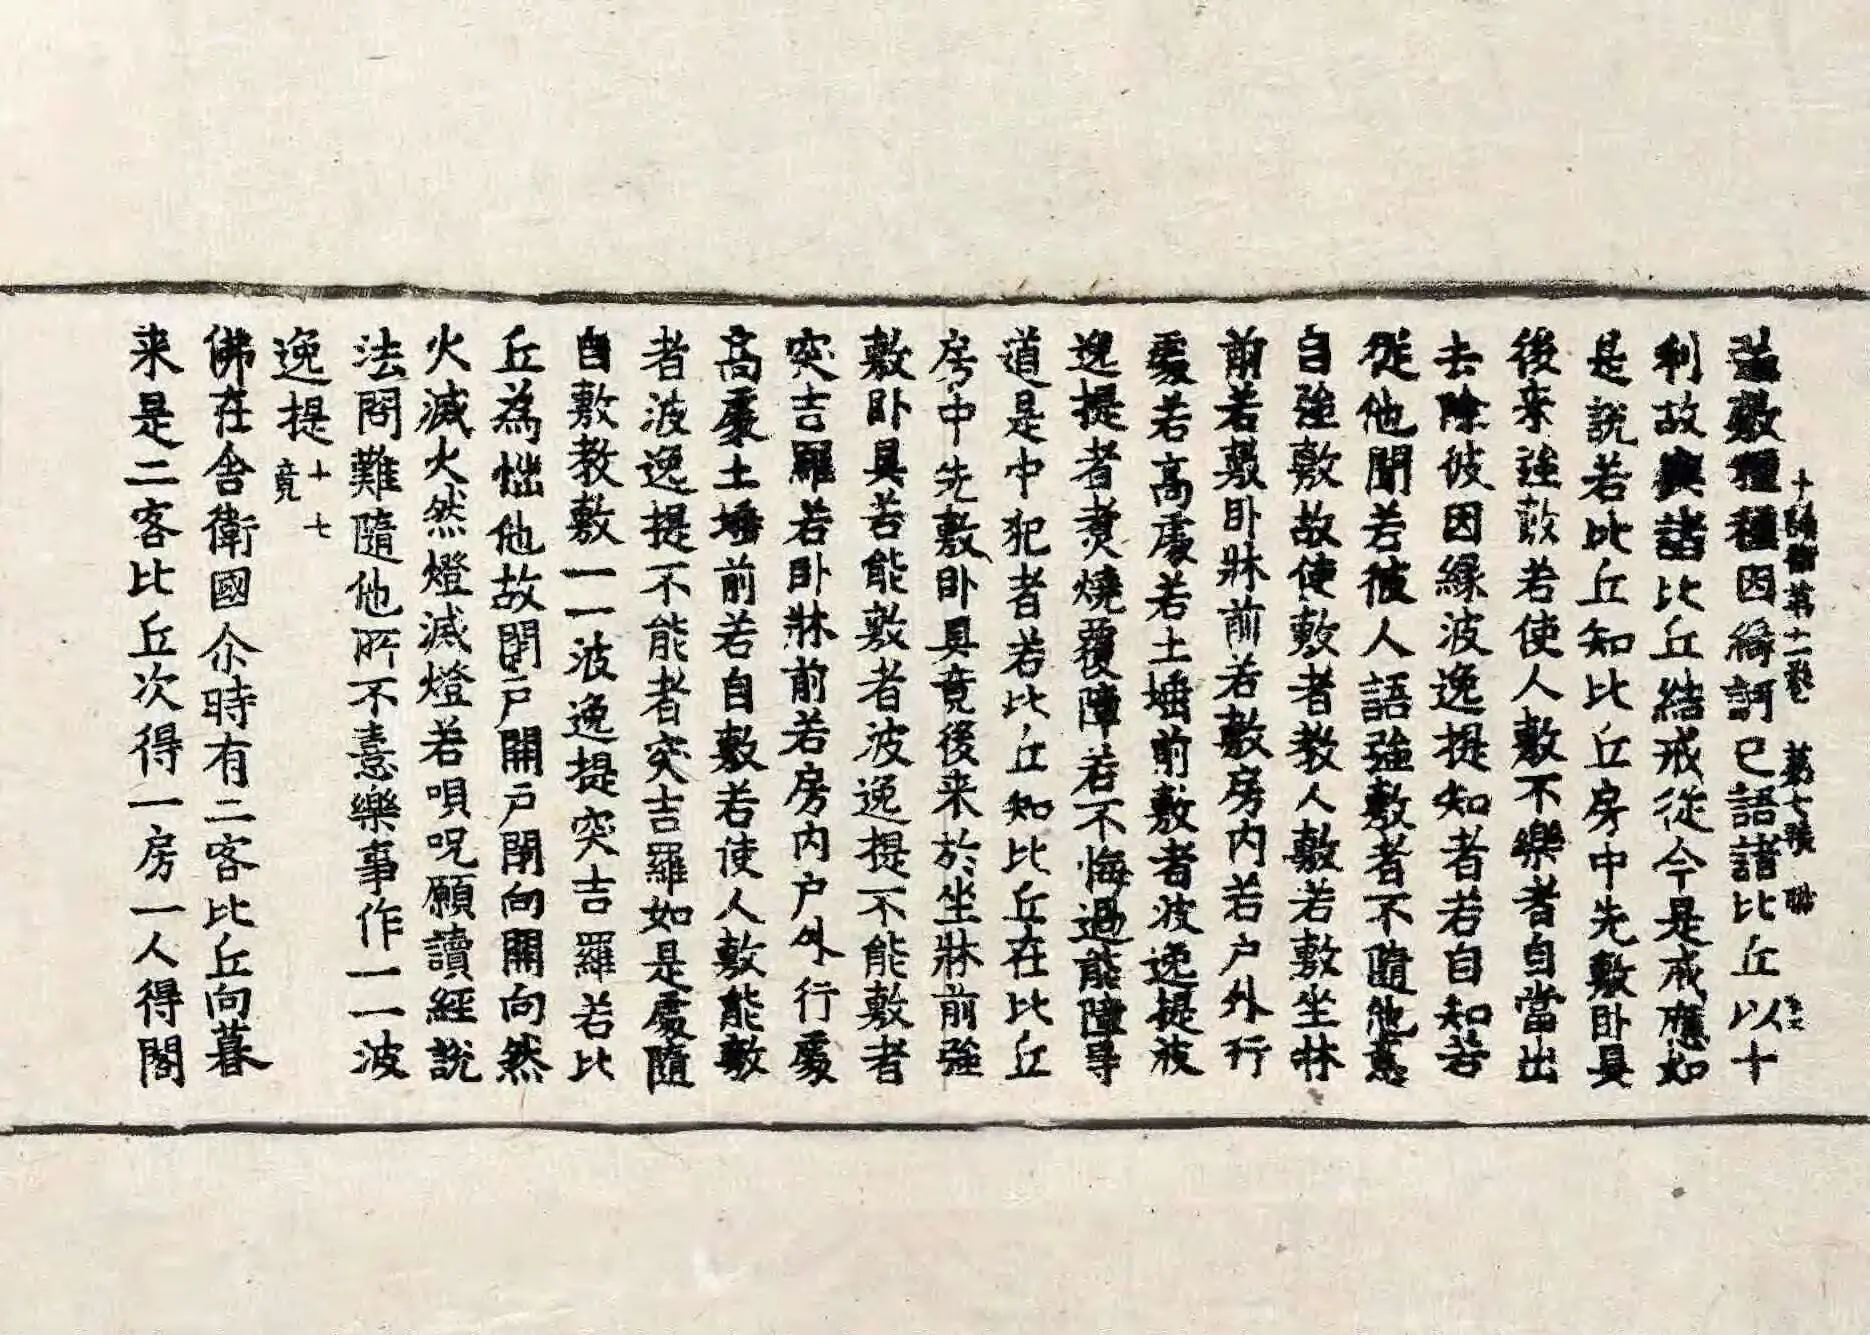 十誦律第十一卷 第七張 
道敷種種因緣訶已語諸比丘以十
利故與諸比丘結戒從今是戒應如
是說若比丘知比丘房中先敷卧具
後来强敷若使人敷不樂者自當出
去除彼因緣波逸提知者若自知若
從他聞若彼人語强敷者不隨他意
自强敷故使敷者教人敷若敷坐牀
前若敷卧牀前若敷房内若户外行
處若高處若土埵前敷者波逸提波
逸提者煑燒覆障若不悔過能障㝵
道是中犯者若比丘知比丘在比丘
房中先敷卧具竟後来於坐牀前强
敷卧具若能敷者波逸提不能敷者
突吉羅若卧牀前若房内户外行處
高處土埵前若自敷若使人敷能敷
者波逸提不能者突吉羅如是處隨
自敷教敷一一波逸提突吉羅若比
丘為惱他故閉户開户閉向開向然
火滅火然燈滅燈若唄呪願讀經說
法問難隨他所不憙樂事作一一波
逸提十七竟
佛在舎衛國尒時有二客比丘向暮
来是二客比丘次得一房一人得閣